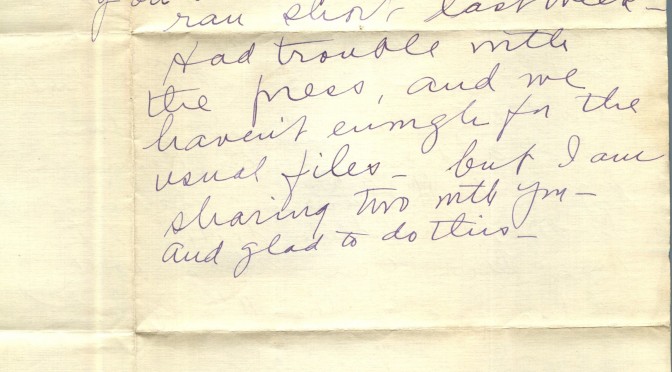 you
ran short last week—
Had trouble with
the press, and we
haven't enough for the
usual files— but I am
sharing two with you—
and glad to do this—